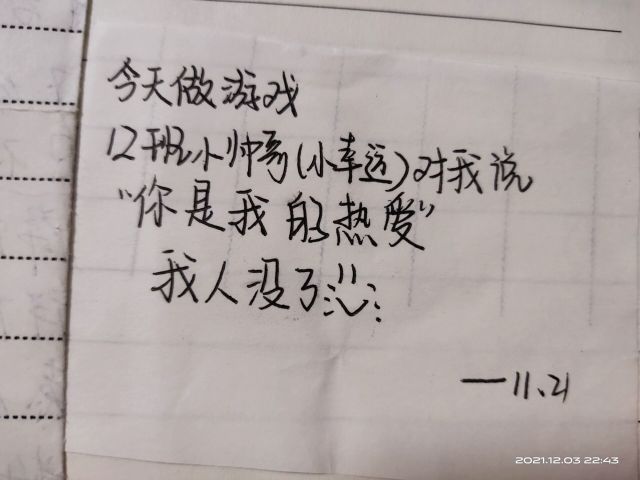 今天做游戏
12班小帅哥(小幸运)对我说
“你是我的热爱”
我人没了
—11.21
2021.12.03 22:43